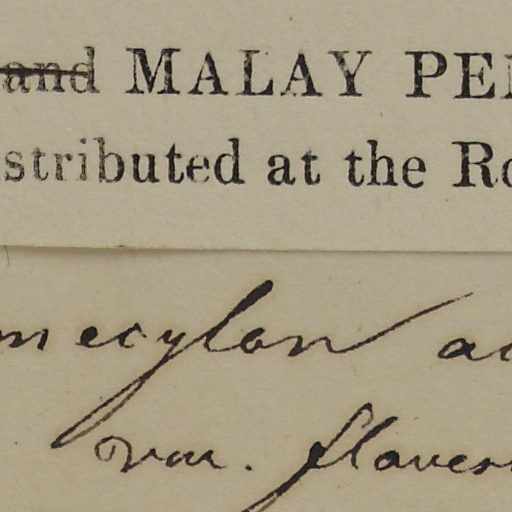 and MALAY PE
stributed at the Ro
mecylon a
var. flaves